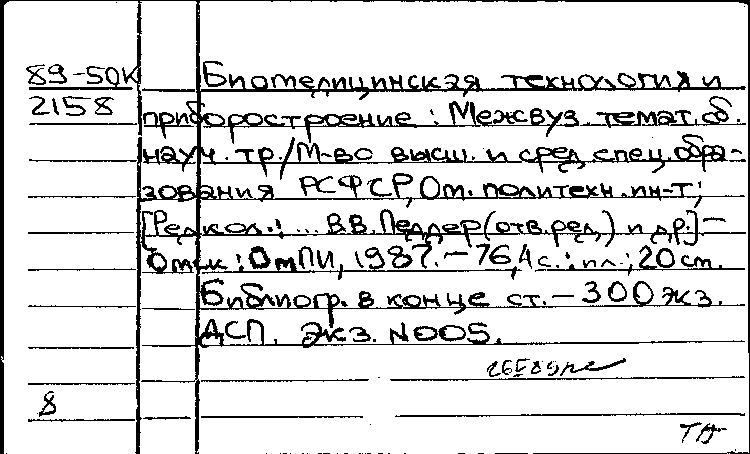 89-50К Биомедицинская технология и
2158 приборостроение : Межвуз. темат. сб.
науч. тр./М-во высш. и сред. спец. обра-
зования РСФСР, Ом. политехн. ин-т;
[Редкол.: ... В.В. Педдер (отв. ред.) и др.] –
Омск : ОмПИ, 1987. – 76,4 с. : ил.; 20 см.
Библиогр. в конце ст. – 300 экз.
ДСП. Экз. N005.
8